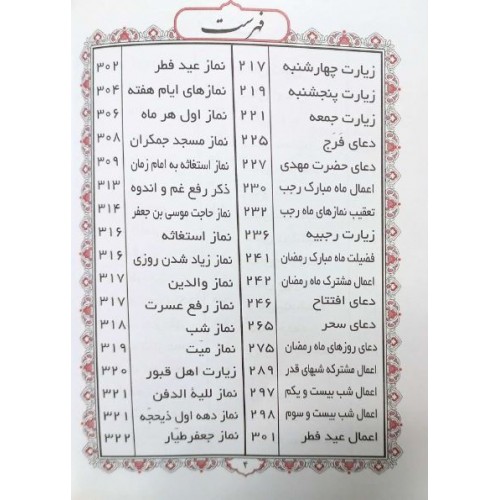 فهرست
زیارت چهارشنبه ۲۱۷
زیارت پنجشنبه ۲۱۹
زیارت جمعه ۲۲۱
دعای فَرَج ۲۲۵
دعای حضرت مهدی ۲۲۷
اعمال ماه مبارک رجب ۲۳۰
تعقیب نمازهای ماه رجب ۲۳۲
زیارت رجبیه ۲۳۶
فضیلت ماه مبارک رمضان ۲۴۱
اعمال مشترک ماه رمضان ۲۴۲
دعای افتتاح ۲۴۶
دعای سحر ۲۶۵
دعای روزهای ماه رمضان ۲۷۵
اعمال مشترکه شبهای قدر ۲۸۹
اعمال شب بیست و یکم ۲۹۷
اعمال شب بیست و سوم ۲۹۸
اعمال عید فطر ۳۰۱
نماز عید فطر ۳۰۲
نمازهای ایام هفته ۳۰۴
نماز اول هر ماه ۳۰۶
نماز مسجد جمکران ۳۰۸
نماز استغاثه به امام زمان ۳۰۹
ذکر رفع غم و اندوه ۳۱۳
نماز حاجت موسی بن جعفر ۳۱۴
نماز استغاثه ۳۱۶
نماز زیاد شدن روزی ۳۱۶
نماز والدین ۳۱۷
نماز رفع عسرت ۳۱۷
نماز شب ۳۱۸
نماز میّت ۳۱۹
زیارت اهل قبور ۳۲۰
نماز لیلة الدفن ۳۲۱
نماز دهه اول ذیحجّه ۳۲۱
نماز جعفرطیّار ۳۲۲
۴